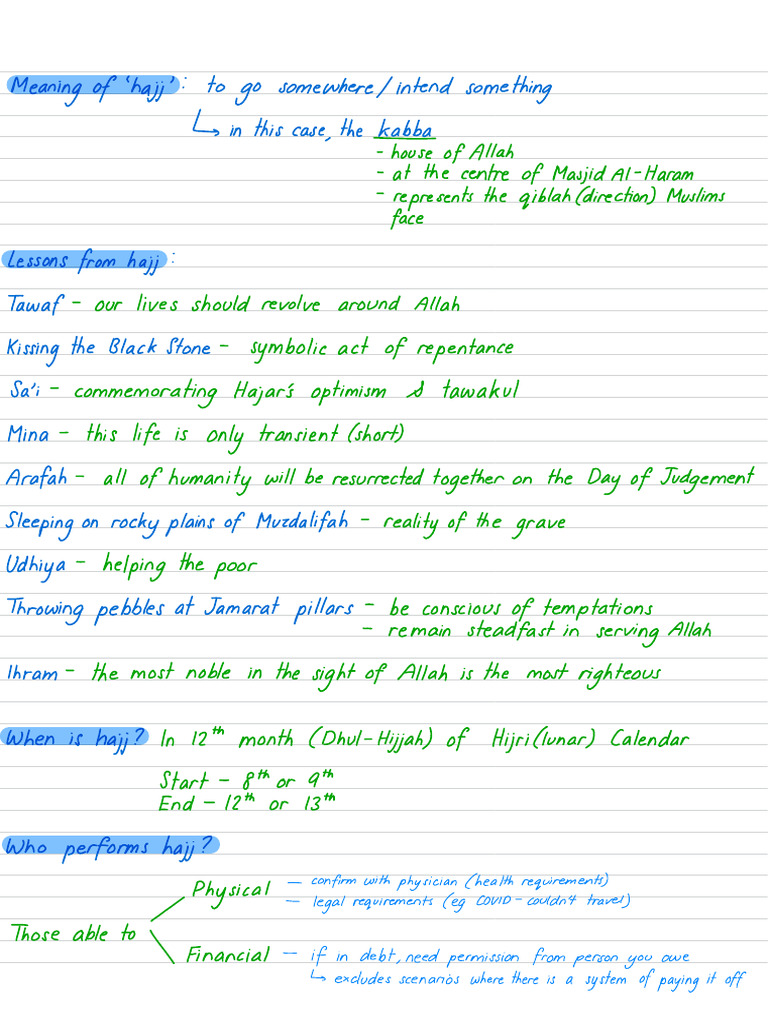 Meaning of 'hajj': to go somewhere/intend something
↳ in this case, the kabba
- house of Allah
- at the centre of Masjid Al-Haram
- represents the qiblah (direction) Muslims
face
Lessons from hajj:
Tawaf - our lives should revolve around Allah
Kissing the Black Stone - symbolic act of repentance
Sa'i - commemorating Hajar's optimism & tawakul
Mina - this life is only transient (short)
Arafah - all of humanity will be resurrected together on the Day of Judgement
Sleeping on rocky plains of Muzdalifah - reality of the grave
Udhiya - helping the poor
Throwing pebbles at Jamarat pillars - be conscious of temptations
- remain steadfast in serving Allah
Ihram - the most noble in the sight of Allah is the most righteous
When is hajj? In 12th month (Dhul-Hijjah) of Hijri (lunar) Calendar
Start - 8th or 9th
End - 12th or 13th
Who performs hajj?
Physical - confirm with physician (health requirements)
- legal requirements (eg COVID - couldn't travel)
Those able to
Financial - if in debt, need permission from person you owe
↳ excludes scenarios where there is a system of paying it off